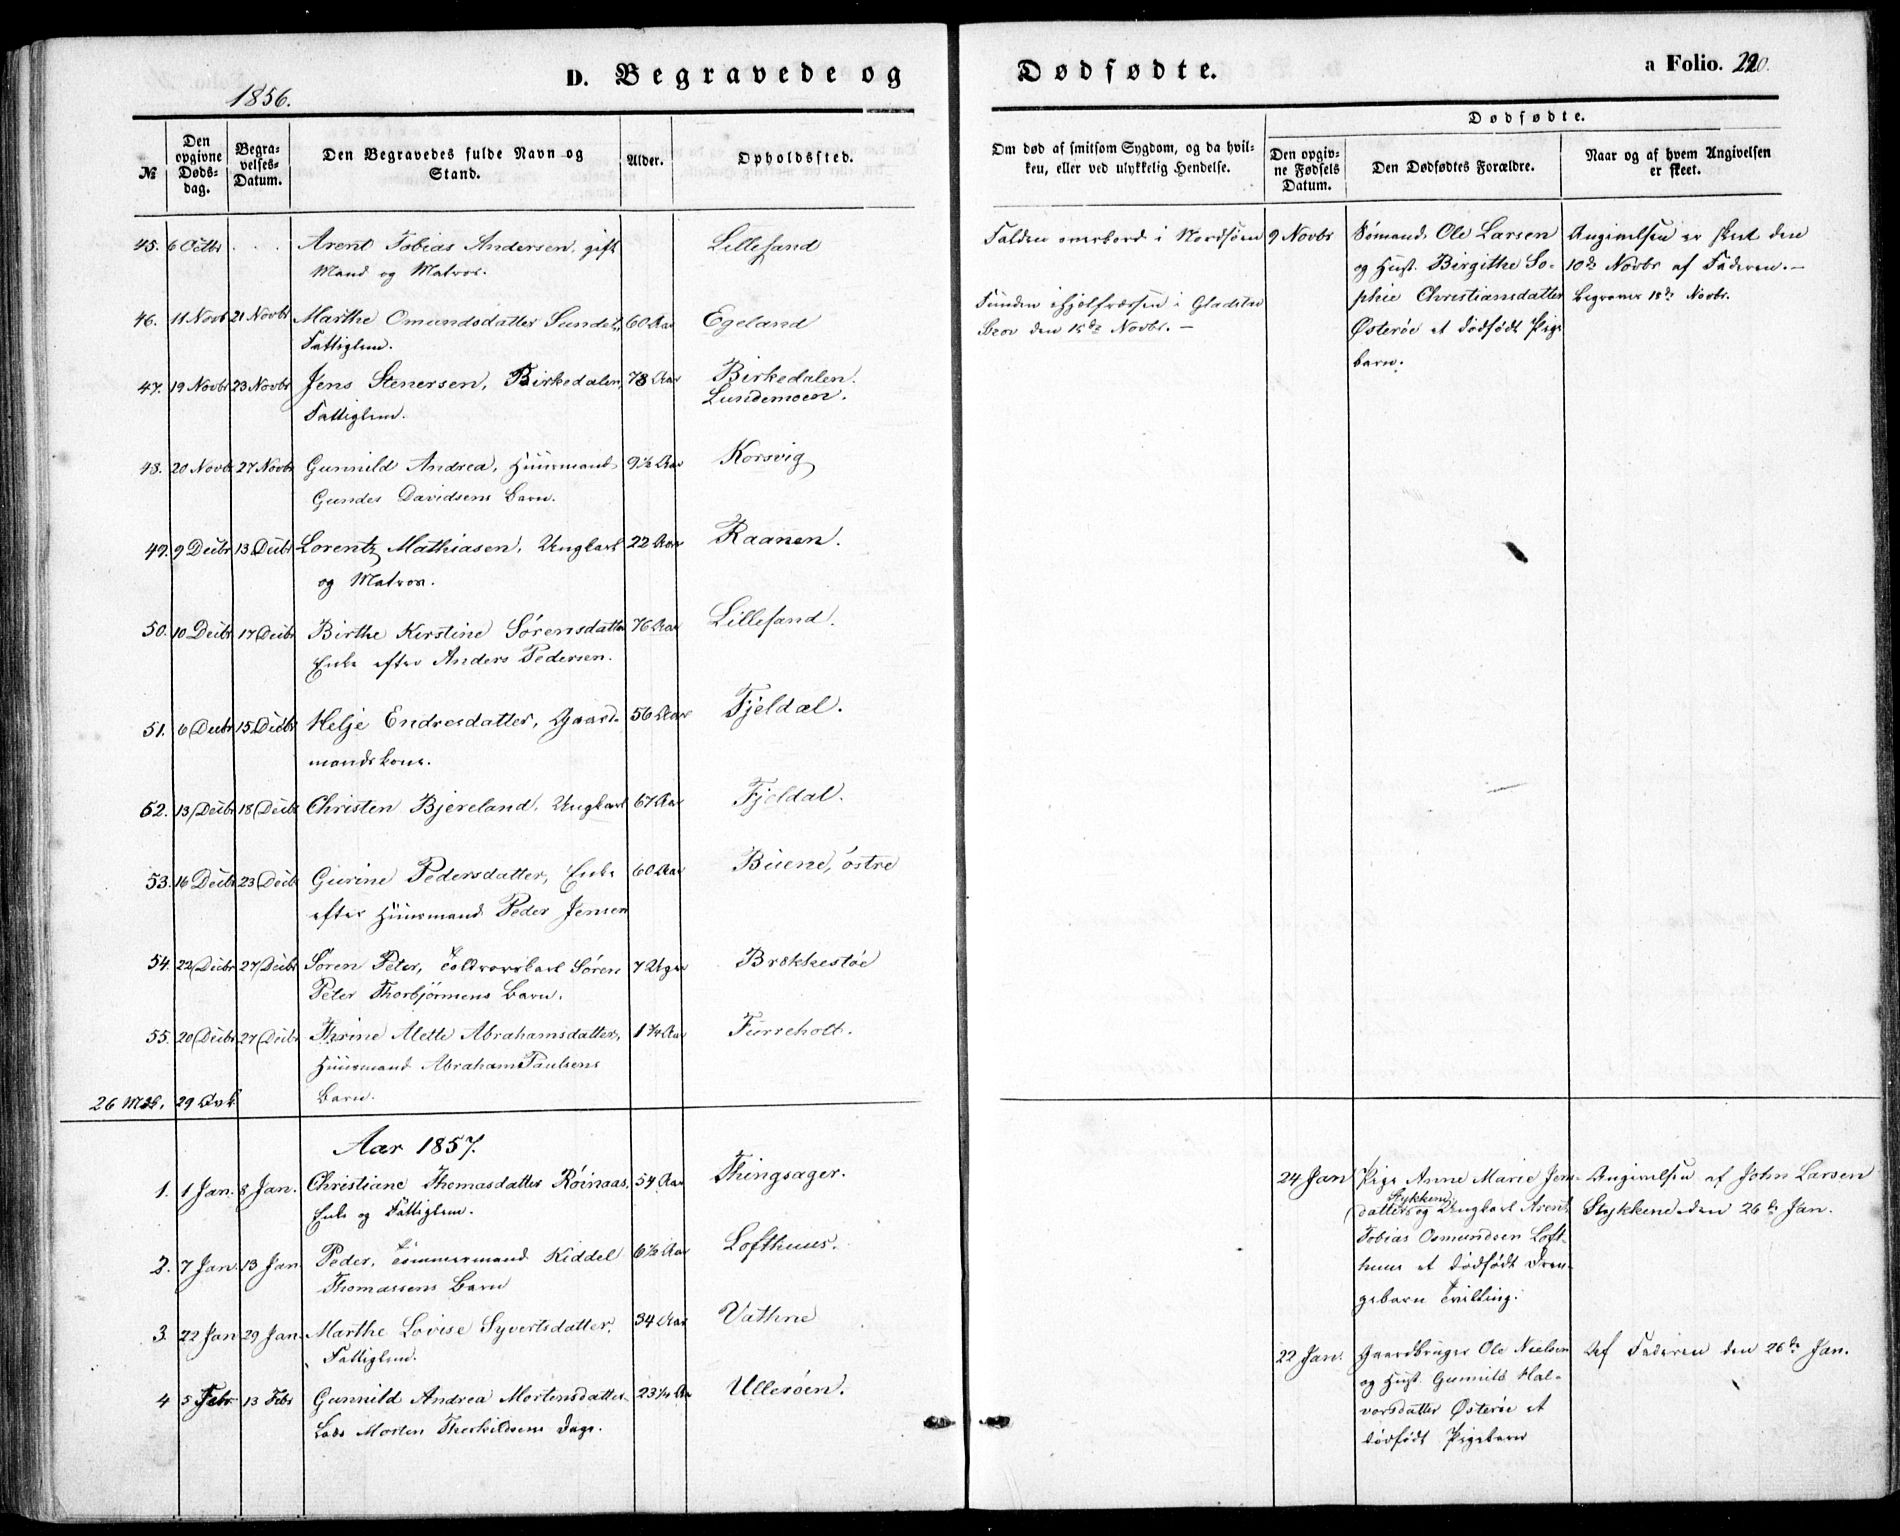 D. Begravede og Dødfødte.
a Folio. 220.
1856.
№
Den opgivne Døds-dag.
Begra-velses-Datum.
Den Begravedes fulde Navn og Stand.
Alder.
Opholdssted.
Om død af smitsom Sygdom, og da hvil-
ken, eller ved ulykkelig Hendelse.
Dødfødte.
Den opgiv-ne Fødsels Datum.
Den Dødfødtes Forældre.
Naar og af hvem Angivelsen er skeet.
45. 6 Octbr . . . Arent Tobias Andersen, gift Lillesand
Mand og Matros.
46. 11 Novb 21 Novbr Marthe Omundsdatter Sundet, 60 Aar Egeland
Fattiglem.
47. 19 Novbr 23 Novbr Jens Stenersen, Birkedalen, 78 Aar Birkedalen.
Fattiglem. Lundemoen.
48. 20 Novbr 27 Novbr Gunnild Andrea, Huusmand 9½ Aar Korsvig
Gundes Davidsens Barn.
49. 9 Decbr 13 Decbr Lorentz Mathiasen, Ungkarl 22 Aar Kaanen.
og Matros.
50. 10 Decbr 17 Decbr Birthe Kirstine Sörensdatter 76 Aar Lillesand.
Enke efter Anders Pedersen.
51. 6 Decbr 15 Decbr Helje Endresdatter, Gaard- 56 Aar Fjeldal.
mandskone.
52. 13 Decbr 18 Decbr Christen Bjereland, Ungkarl 67 Aar Fjeldal.
53. 16 Decbr 23 Decbr Gurine Pedersdatter, Enke 60 Aar Buene, östre
efter Huusmand Peder Jensen
54. 22 Decbr 27 Decbr Sören Peter, Toldroerskarl Sören 7 Uger Brekkestöe
Peter Thorbjörnsens Barn.
55. 20 Decbr 27 Decbr Thrine Alette Abrahamsdatter, 1¼ Aar Furreholt.
Huusmand Abraham Paulsens
Barn.
26 Mdk. 29 Qvk.
Aar 1857.
1. 1 Jan. 8 Jan. Christiane Thomasdatter Röinaas, 54 Aar Thingsager.
Enke og Fattiglem.
2. 7 Jan. 13 Jan Peder, Tömmermand Kiddel 6½ Aar Lofthuus.
Thomassens Barn
3. 22 Jan 29 Jan. Marthe Lovise Syvertsdatter, 34 Aar Vathne
Fattiglem.
4 5 Febr 13 Febr Gunnild Andrea Mortensdatter Ulleröen.
Lods Morten Therkildsens
Falden overbord i Nordsöen
Funden ihjelfrossen i
den 15de Novbr. —
9 Novbr Sömand Ole Larsen
og Hust. Birgithe So-
phie Christiansdatter
Østeröe et dödfödt Pige
barn.
Angivelsen er skeet den
10de Novbr af Faderen. —
Begraves 18de Novbr.
24 Jan Pige Anne Marie Jens-
Stykkene,
datter og Ungkarl Arent
Tobias Osmundsen Loft-
huus et dödfödt Dren-
gebarn Tvilling.
Angivelsen af John Larsen
Stykkene den 26de Jan.
22 Jan. Gaardbruger Ole Nielsen
og Hust. Gunnild Hal-
vorsdatter Østeröe et
dödfödt Pigebarn
Af Faderen den 26de Jan.